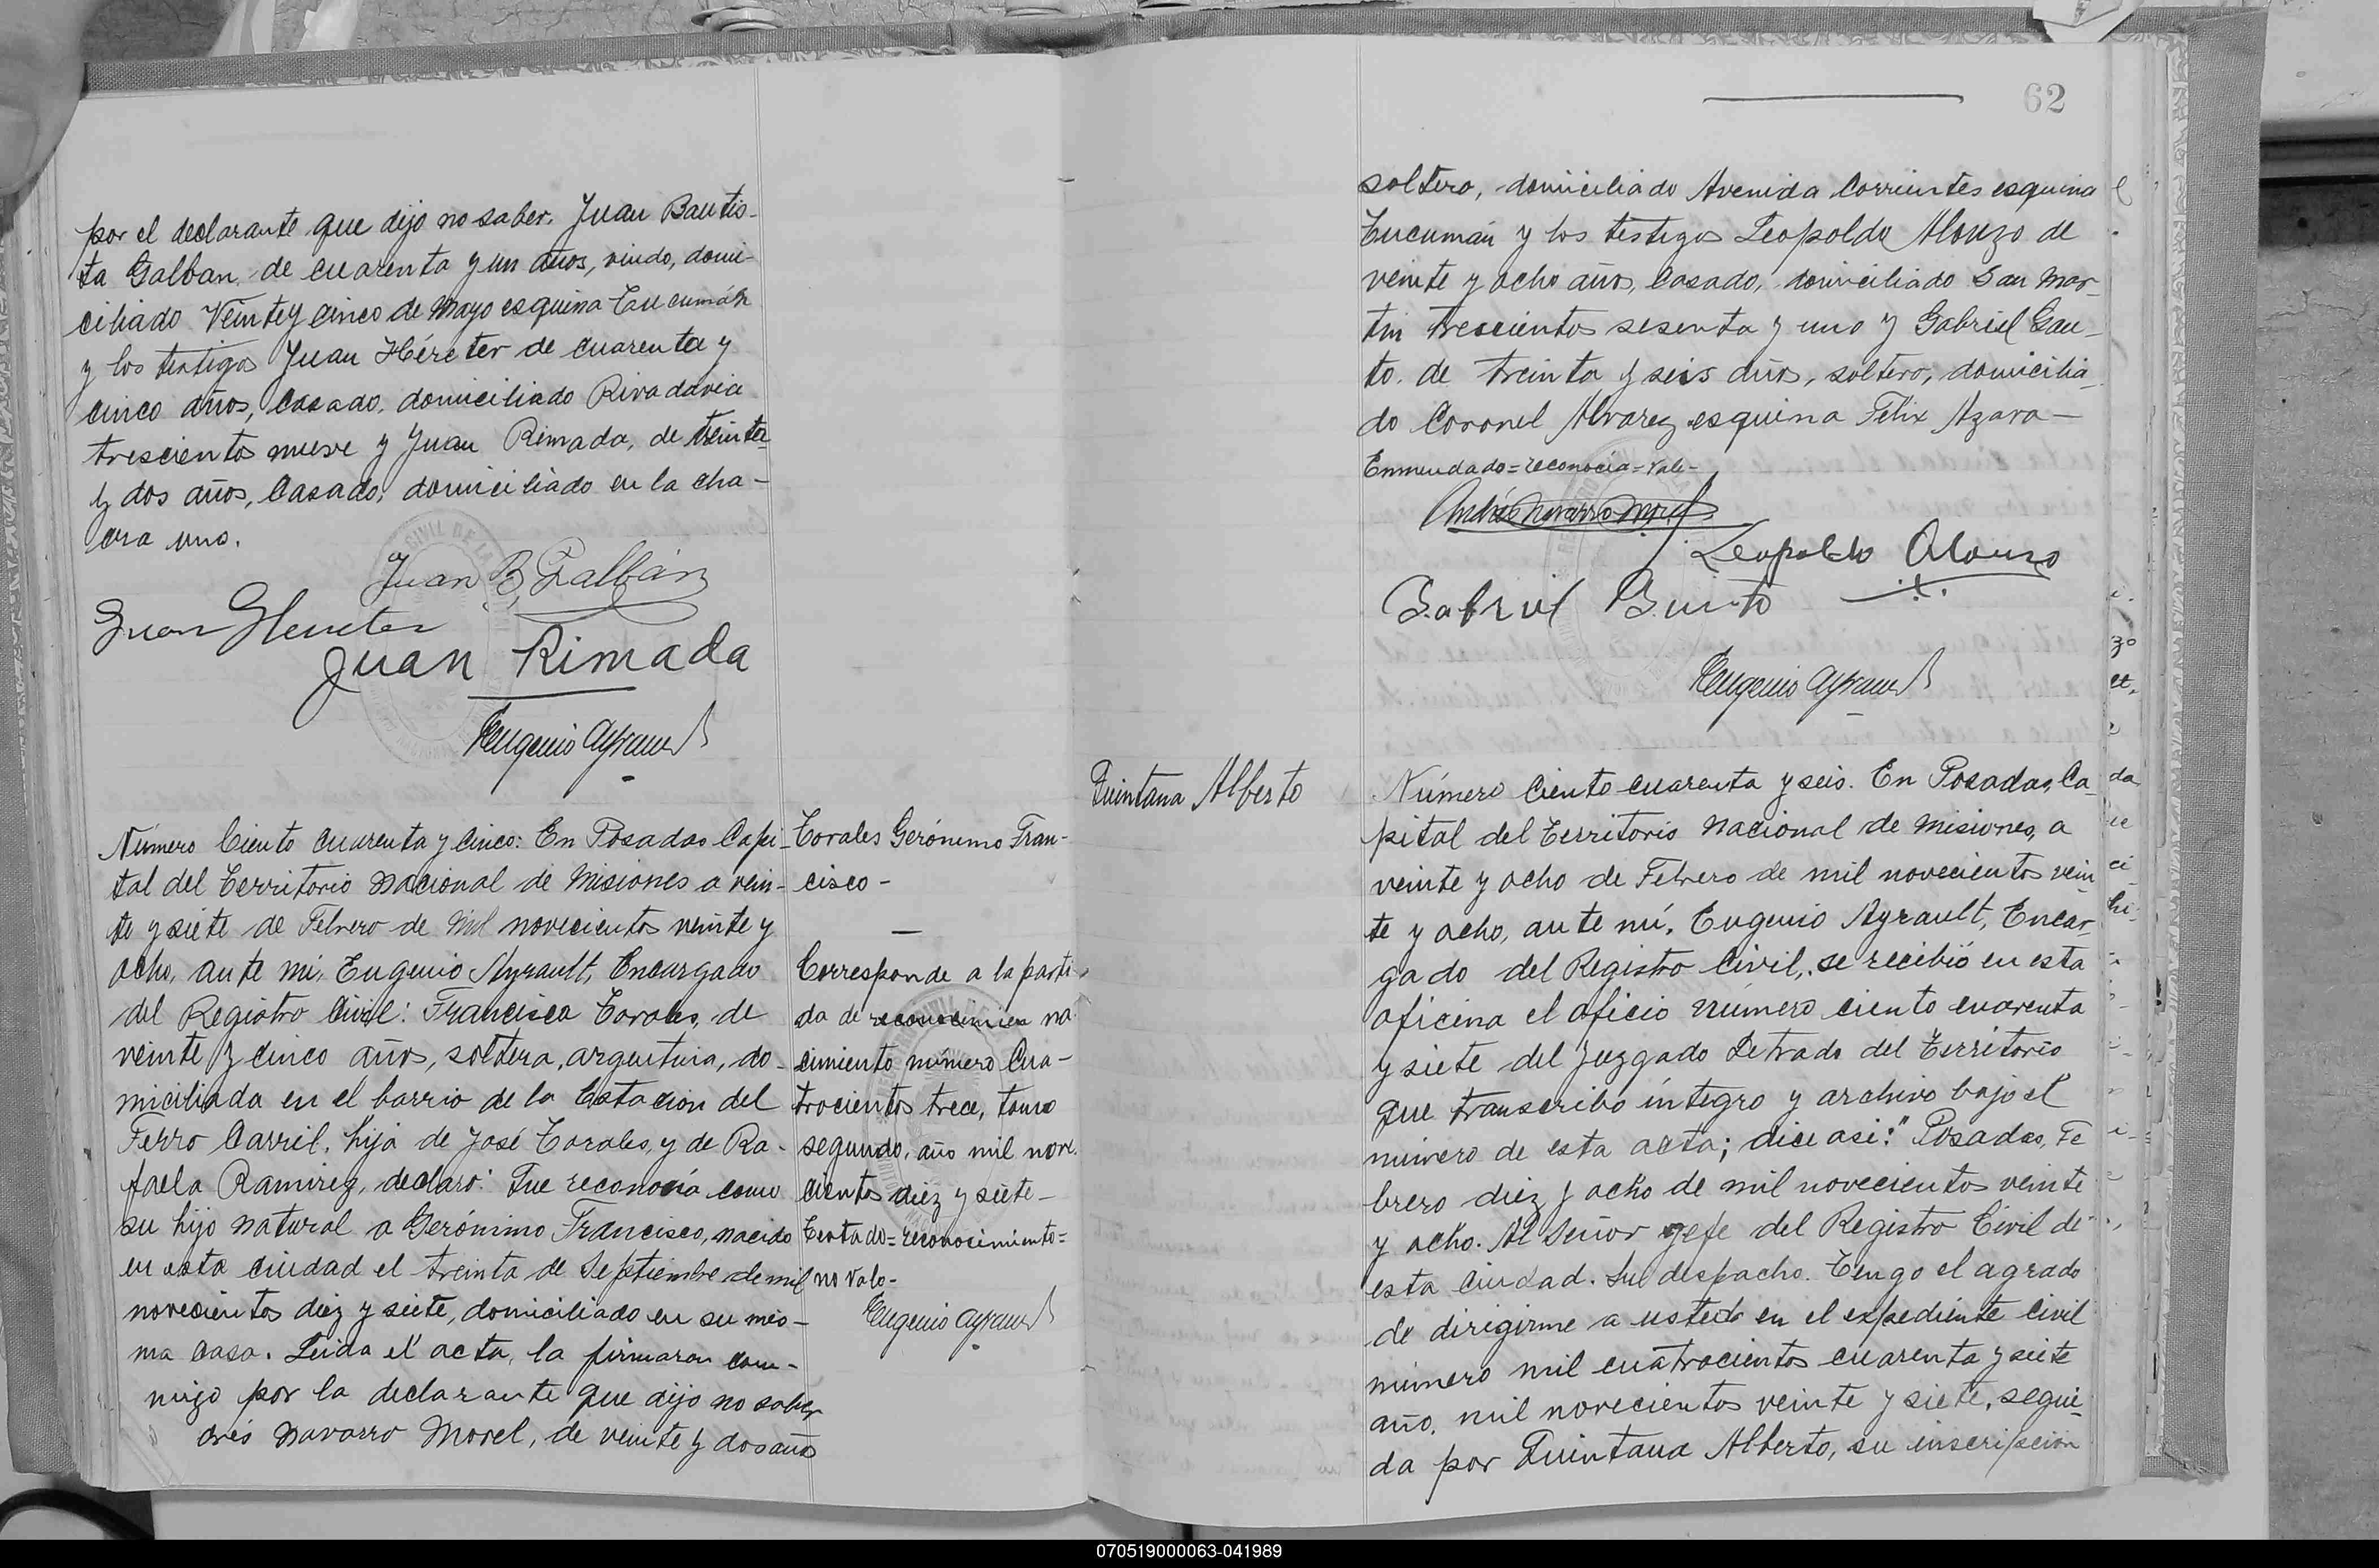 por el declarante que dijo no saber. Juan Bautis-
ta Galban, de cuarenta y un años, viudo, domi-
ciliado Veinte y cinco de Mayo esquina Tucumán
y los testigos Juan Héreter de cuarenta y
cinco años, casado, domiciliado Rivadavia
trescientos nueve y Juan Rimada, de treinta
y dos años, casado, domiciliado en la cha-
cra uno.
Juan B. Galbán
Juan Hereter
Juan Rimada
Eugenio Ayrault
Número Ciento cuarenta y cinco: En Posadas Capi-
tal del Territorio Nacional de Misiones a vein-
te y siete de Febrero de mil novecientos veinte y
ocho, ante mi, Eugenio Ayrault, Encargado
del Registro Civil: Francisca Torales, de
veinte y cinco años, soltera, argentina, do-
miciliada en el barrio de la Estación del
Ferro Carril, hija de José Torales, y de Ra-
faela Ramirez, declaró: Que reconocía como
su hijo natural a Gerónimo Francisco, nacido
en esta ciudad el treinta de Septiembre de mil
novecientos diez y siete, domiciliado en su mis-
ma casa. Leida el acta, la firmaron con-
migo por la declarante que dijo no saber
drés Navarro Morel, de veinte y dos años
Torales Gerónimo Fran-
cisco -
Corresponde a la parti
da de reconocimien na
cimiento número Cua-
trocientos trece, tomo
segundo, año mil nove
cientos diez y siete-
Testado=reconocimiento=
no vale-
Eugenio Ayrault
62
soltero, domiciliado Avenida Corrientes esquina
Tucumán y los testigos Leopoldo Alonzo de
veinte y ocho años, casado, domiciliado San Mar-
tin trescientos sesenta y uno y Gabriel Gau-
to, de treinta y seis años, soltero, domicilia-
do Coronel Alvarez esquina Félix Azara-
Enmendado=reconocía=vale-
Andrés Navarro Morel
Leopoldo Alonso
Gabriel
Eugenio Ayrault
Quintana Alberto
Número Ciento cuarenta y seis. En Posadas, Ca
pital del Territorio Nacional de Misiones, a
veinte y ocho de Febrero de mil novecientos vein
te y ocho, ante mí, Eugenio Ayrault, Encar
gado del Registro Civil, se recibió en esta
oficina el oficio número ciento cuarenta
y siete del Juzgado Letrado del Territorio
que transcribo íntegro y archivo bajo el
número de esta acta; dice asi: "Posadas, Fe
brero diez y ocho de mil novecientos veinte
y ocho. Al Señor gefe del Registro Civil de
esta Ciudad. Su despacho. Tengo el agrado
de dirigirme a usted en el expediente civil
número mil cuatrocientos cuarenta y siete
año, mil novecientos veinte y siete, segui-
da por Quintana Alberto, su inscripción
070519000063-041989